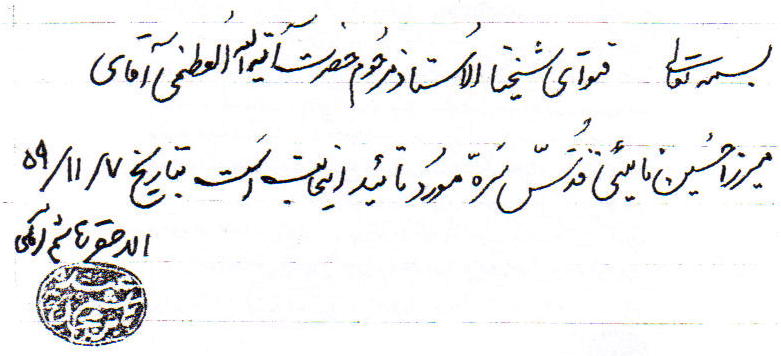 بسمه تعالی فتوای شیخنا الاستاذ مرحوم حضرت آیة الله العظمی آقای
میرزا حسین نائینی قدّس سرّه مورد تائید اینجانب است بتاریخ ۵۹/۱۱/۷
الاحقر هاشم آملی